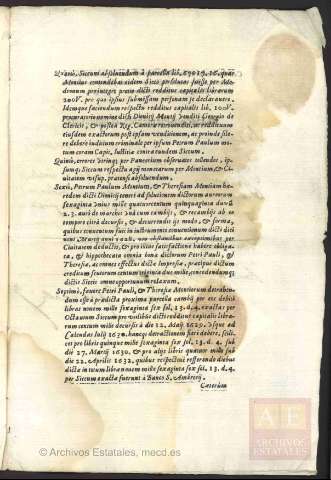 Quartò, Siccum absoluendum à parcella lib. 59019.16. quas
Montius contendebat eidem Sicco persolutas fuisse per Melodronum
pro integro pretio dicti redditus capitalis librarum
200V. pro quo ipsius submissam personam se declarauere.
Idemque faciendum respectu redditus capitalis lib. 100V.
procuratorio nomine dicti Dimitrij Montij venditi Georgio de
Clericis, & postea Reg. Camera restituendi, ac redditum
eiusdem exactorum post ipsam venditionem, ac proinde solere
deberè iudicium coram pro ipsum Petrum Paulum motum
coram Capit. Iustitiæ contra eundem Siccum.
Quintò, errores Deringi per Pancerium obseruatos tollendos,
ipsumq; Siccum respectu agij monetarum per Montium, & Ciuitatem
respup. prætensi absoluendum.
Sextò, Petrum Paulum Montium, & Theresiam Montiam hæredem
dicti Dimitrij teneri ad solutionem dictorum aureorum
sexaginta vnius mille quatuorcentum quinquaginta duorũ
2.3. auri de marchis vnà cum cambijs, & recambijs ab omni
tempore citrà decursis, & decurrendis eo modo, & forma,
quibus conuentum fuit in instrumento conuentionum dicti diei
noni Martij anni 1618. non obstantibus exceptionibus per
Ciuitatem deductis, & pro illius satisfactione habere obligata,
& hypothecata omnia bona dictorum Petri Pauli, &
Theresiæ, ac omnes effectus dictæ Impresiæ, præcipuè dictum
creditum scutorum centum viginta duo mille, concedendumq;
dictis Sicco omne opportunum relaxum.
Septimò, fauore Petri Pauli, & Theresiæ Montiorum detrahendas
esse à prædicta proxima parcella cambij pro exs debiti
libras nonem mille sexaginta sex sol. 13. d. 4. exactas per
Octauium Siccum pro reditibus dicti redditus capitalis librarum
centum mille decursi à die 12. Maij 1629. vsque ad
Calendas Iulij 1630. huncq; detractionem fieri debere, scilicet
pro libris quinque mille sexaginta sex sol. 13. d. 4. sub
die 27. Martij 1630. & pro alijs libris quatuor mille sub
die 22. Aprilis 1632. quibus respectiuè referendo diebus
dicta in totum libra nouem mille sexaginta sex sol. 13. d. 4.
per Siccum exacta fuerunt à Banco S. Ambrosij.
Cæterùm
© Archivos Estatales, mecd.es
A E
ARCHIVOS
ESTATALES